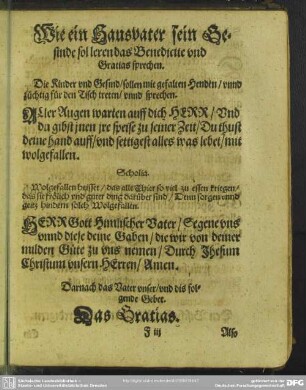 Wie ein Hausvater sein Ge-
sinde sol leren das Benedicite vnd
Gratias sprechen.
Die Kinder vnd Gesind/ sollen mit gefalten Henden/ vnnd
züchtig für den Tisch tretten/ vnnd sprechen.
ALler Augen warten auff dich HERR/ Vnd
du gibst jnen jre speise zu seiner Zeit/ Du thust
deine hand auff/ vnd settigest alles was lebet/ mit
wolgefallen.
Scholia.
Wolgefallen heisset/ das alle Thier so viel zu essen kriegen/
das sie frölich vnd guter ding darüber sind/ Denn sorgen vnnd
geitz hindern solch Wolgefallen.
HERR Gott Himlischer Vater/ Segene vns
vnnd diese deine Gaben/ die wir von deiner
milden Güte zu vns nemen/ Durch Jhesum
Christum vnsern HErren/ Amen.
Darnach das Vater vnser/ vnd dis fol-
gende Gebet.
Das Gratias.
F iij